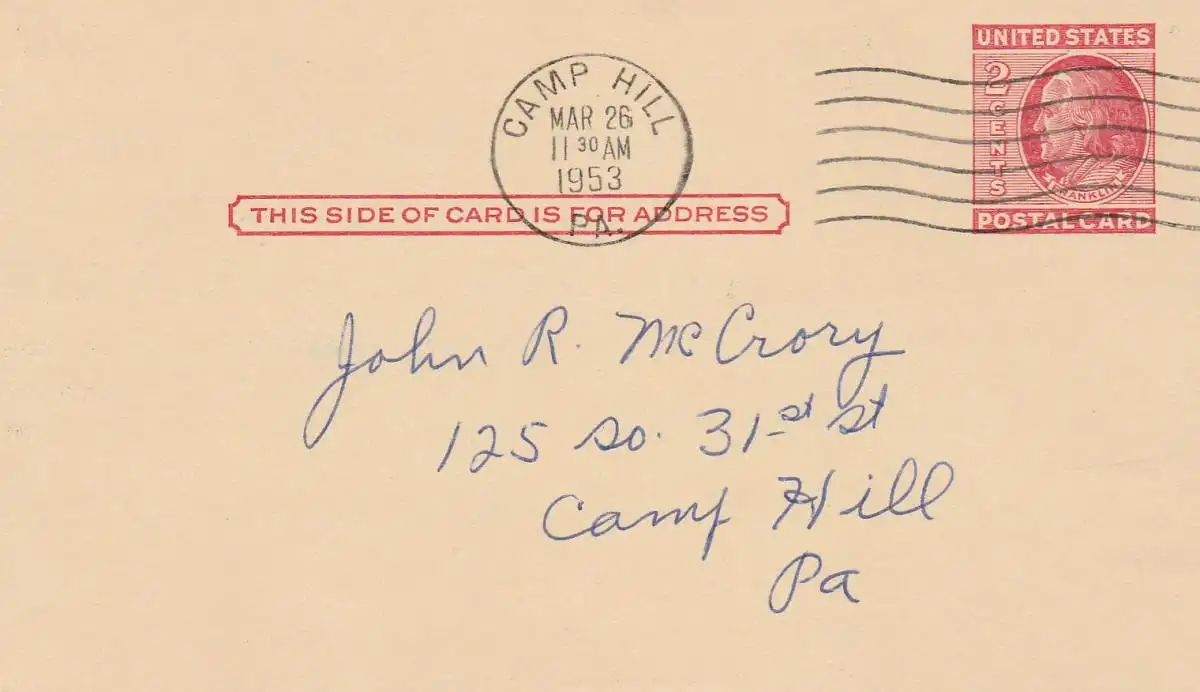 UNITED STATES
2 CENTS
FRANKLIN
POSTAL CARD
CAMP HILL
MAR 26
11 30 AM
1953
PA.
THIS SIDE OF CARD IS FOR ADDRESS
John R. McCrory
125 So. 31st St
Camp Hill
Pa